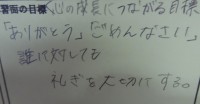 署面の目標 心の成長につながる目標
「ありがとう」「ごめんなさい」
誰に対しても
礼ぎを大切にする。